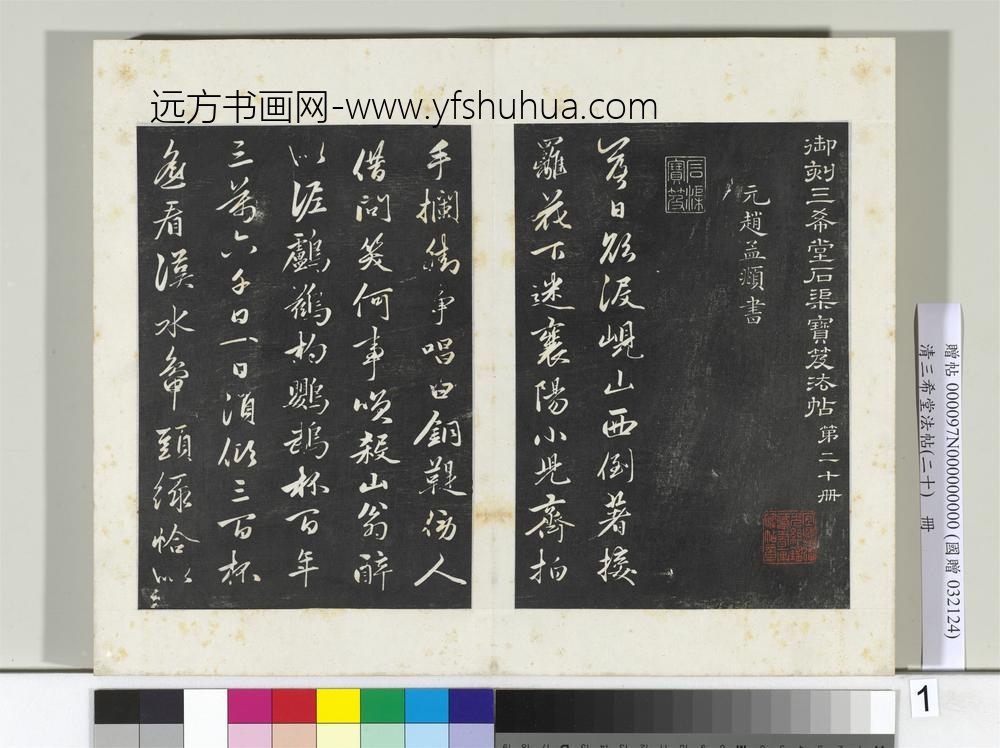 远方书画网-www.yfshuhua.com
御刻三希堂石渠寶笈法帖 第二十冊
元趙孟頫書
石渠寶笈
落日欲没峴山西倒著接
䍦花下迷襄陽小児齊拍
手攔街爭唱白銅鞮傍人
借問笑何事咲殺山翁醉
似泥鸕鶿杓鸚鵡杯百年
三萬六千日一日須傾三百杯
遥看漢水鴨頭綠恰似
贈帖 000097N000000000 (國贈 032124)
清三希堂法帖(二十) 冊
1